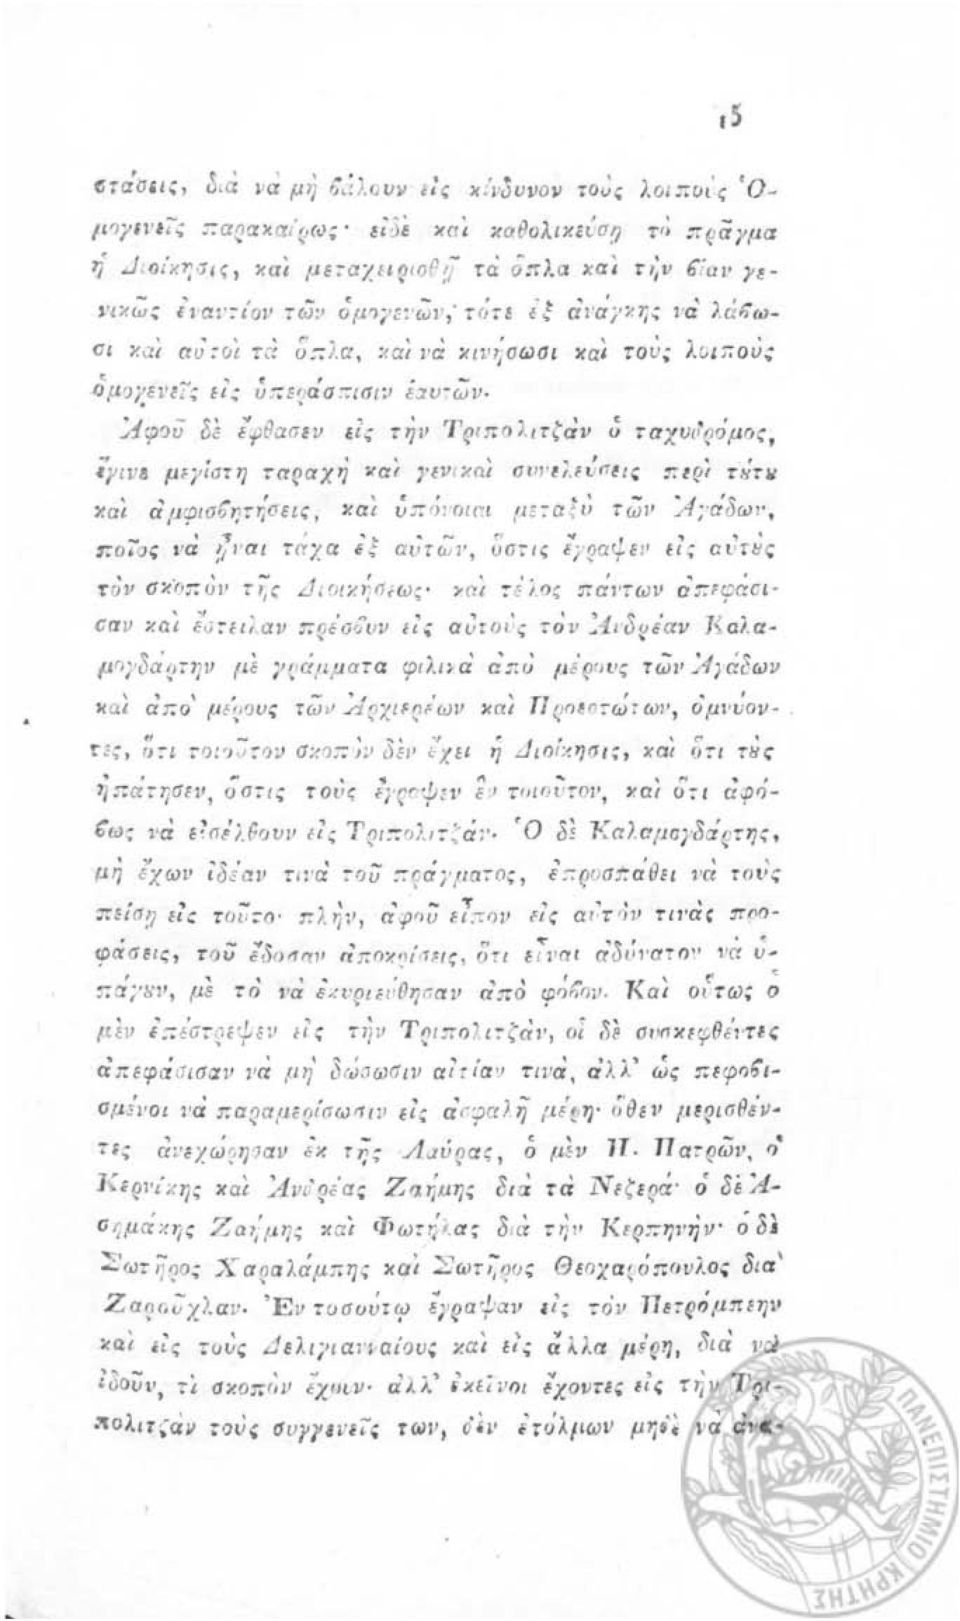 15
στάσεις, διὰ νὰ μὴ βάλουν εἰς κίνδυνον τοὺς λοιποὺς Ὁ-
μογενεῖς παρακαίρως· εἰδὲ καὶ καθολικεύσῃ τὸ πρᾶγμα
ἡ Διοίκησις, καὶ μεταχειρισθῇ τὰ ὅπλα καὶ τὴν βίαν γε-
νικῶς ἐναντίον τῶν ὁμογενῶν, τότε ἐξ ἀνάγκης νὰ λάβω-
σι καὶ αὐτοὶ τὰ ὅπλα, καὶ νὰ κινήσωσι καὶ τοὺς λοιποὺς
ὁμογενεῖς εἰς ὑπεράσπισιν ἑαυτῶν.
Ἀφοῦ δὲ ἔφθασεν εἰς τὴν Τριπολιτζὰν ὁ ταχυδρόμος,
ἔγινε μεγίστη ταραχὴ καὶ γενικαὶ συνελεύσεις περὶ τȣ́τȣ
καὶ ἀμφισβητήσεις, καὶ ὑπόνοιαι μεταξὺ τῶν Ἀγάδων,
ποῖος νὰ ᾖναι τάχα ἐξ αὐτῶν, ὅστις ἔγραψεν εἰς αὐτȣ̀ς
τὸν σκοπὸν τῆς Διοικήσεως· καὶ τέλος πάντων ἀπεφάσι-
σαν καὶ ἔστειλαν πρέσβυν εἰς αὐτοὺς τὸν Ἀνδρέαν Καλα-
μογδάρτην μὲ γράμματα φιλικὰ ἀπὸ μέρους τῶν Ἀγάδων
καὶ ἀπὸ μέρους τῶν Ἀρχιερέων καὶ Προεστώτων, ὀμνύον-
τες, ὅτι τοιοῦτον σκοπὸν δὲν ἔχει ἡ Διοίκησις, καὶ ὅτι τȣ̀ς
ἠπάτησεν, ὅστις τοὺς ἔγραψεν ἓν τοιοῦτον, καὶ ὅτι ἀφό-
βως νὰ εἰσέλθουν εἰς Τριπολιτζάν. Ὁ δὲ Καλαμογδάρτης,
μὴ ἔχων ἰδέαν τινὰ τοῦ πράγματος, ἐπροσπάθει νὰ τοὺς
πείσῃ εἰς τοῦτο· πλὴν, ἀφοῦ εἶπον εἰς αὐτὸν τινὰς προ-
φάσεις, τοῦ ἔδοσαν ἀποκρίσεις, ὅτι εἶναι ἀδύνατον νὰ ὑ-
πάγȣν, μὲ τὸ νὰ ἐκυριεύθησαν ἀπὸ φόβον. Καὶ οὕτως ὁ
μὲν ἐπέστρεψεν εἰς τὴν Τριπολιτζὰν, οἱ δὲ συσκεφθέντες
ἀπεφάσισαν νὰ μὴ δώσωσιν αἰτίαν τινὰ, ἀλλ' ὡς πεφοβι-
σμένοι νὰ παραμερίσωσιν εἰς ἀσφαλῆ μέρη· ὅθεν μερισθέν-
τες ἀνεχώρησαν ἐκ τῆς Λαύρας, ὁ μὲν Π. Πατρῶν, ὁ
Κερνίκης καὶ Ἀνδρέας Ζαήμης διὰ τὰ Νεζερά· ὁ δὲ Ἀ-
σημάκης Ζαήμης καὶ Φωτήλας διὰ τὴν Κερπηνήν· ὁ δὲ
Σωτῆρος Χαραλάμπης καὶ Σωτῆρος Θεοχαρόπουλος διὰ
Ζαροῦχλαν. Ἐν τοσούτῳ ἔγραψαν εἰς τὸν Πετρόμπεην
καὶ εἰς τοὺς Δελιγιανναίους καὶ εἰς ἄλλα μέρη, διὰ νὰ
ἰδοῦν, τὶ σκοπὸν ἔχουν· ἀλλ' ἐκεῖνοι ἔχοντες εἰς τὴν Τρι-
πολιτζὰν τοὺς συγγενεῖς των, δὲν ἐτόλμων μηδὲ νὰ ἀνα-
ΠΑΝΕΠΙΣΤΗΜΙΟ ΚΡΗΤΗΣ